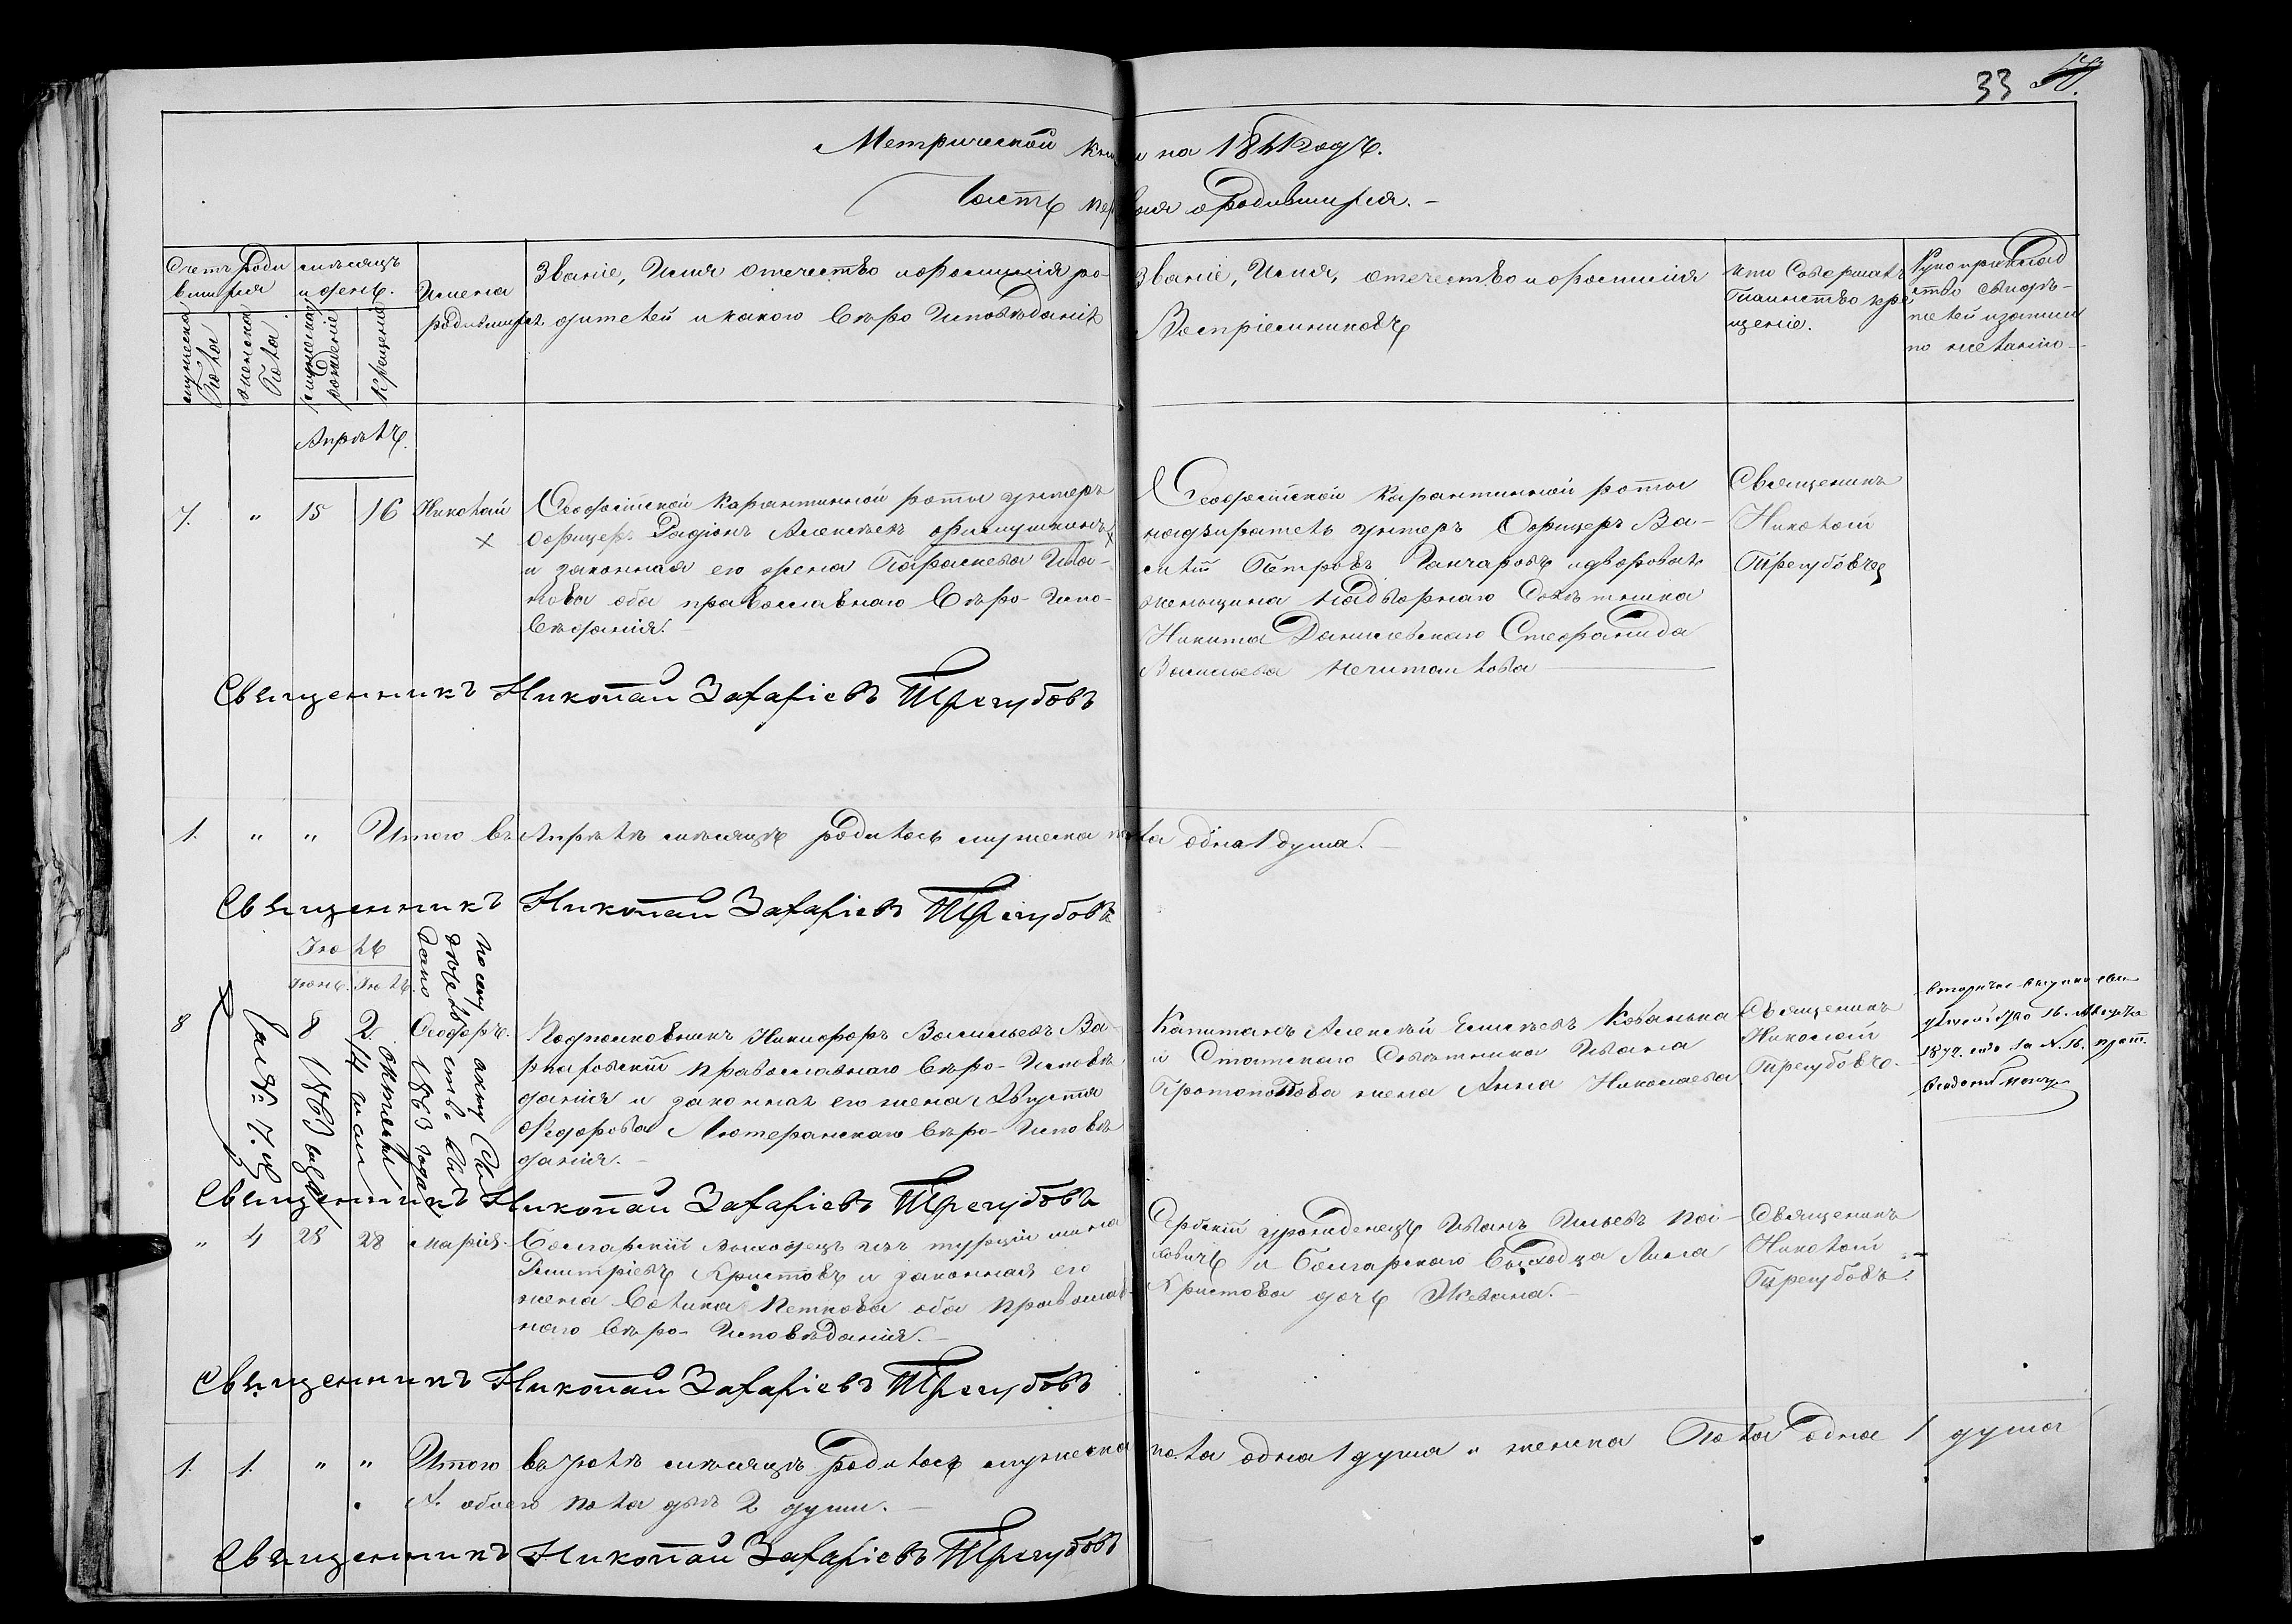 33
Метрической книги на 1841 годъ.
Часть первая о родившихся. –
Счетъ роди
вшихся
мужеска
Пола
женска
Пола
мѣсяцъ
и день.
рожденіе
Крещеніе
Имена
родившихся.
Званіе, Имя отечество и фамилія ро-
дителей и какого вѣро Исповѣданія
Званіе, Имя, отечество и фамилія
Воспріемниковъ
кто Совершалъ
Таинство кре
щеніе.
Рукоприклад
ство свидѣ-
телей записи
по желанію –
Апрѣль.
7. " 15 16 Николай
Феодосійской Карантинной роты унтеръ
Офицеръ Радіонъ Алексѣевъ
и законная его жена Параскева Ива-
нова оба православнаго Вѣро-Испо-
вѣданія. –
Феодосійской Карантинной роты
надзиратель унтеръ Офицеръ Ва-
силій Петровъ Ганчаровъ и дворовая
женьщина Надворнаго Совѣтника
Никита Данилевскаго Стефанида
Васильева
Священникъ
Николай
Трегубовъ
Священникъ Николай Захаріевъ Трегубовъ
1. " " Итого въ Апрѣлѣ мѣсяцѣ родилось мужеска пола одна 1 душа. –
Священникъ Николай Захаріевъ Трегубовъ
Іюль
Іюнь. Іюль.
8 8 2 Феодоръ.
По сему акту
дано 1863 года
Подполковникъ Никифоръ Васильевъ Ва-
православнаго вѣро-Исповѣ
данія и законная его жена Августа
Федорова Лютеранскаго вѣро-Исповѣ
данія. –
Капитанъ Алексѣй Елисѣевъ Кованька
и Статскаго Совѣтника Ивана
Протопопова жена Анна Николаева
Священникъ
Николай
Трегубовъ.
16. Августа
Священникъ Николай Захаріевъ Трегубовъ
" 4 25 28 Марія.
Болгарскій выходецъ изъ турціи
Дмитріевъ Христовъ и законная его
жена Петкова оба православ-
наго вѣро-Исповѣданія. –
Сербскій уроженецъ Иванъ Ильевъ
и Болгарскаго Выходца
Христова дочь Живана. –
Священникъ
Николай
Трегубовъ.
Священникъ Николай Захаріевъ Трегубовъ
1. 1. " " Итого въ Іюлѣ мѣсяцѣ родилось мужеска пола одна 1 душа и женска Пола одна 1 душа
А обоего пола двѣ 2 души. –
Священникъ Николай Захаріевъ Трегубовъ